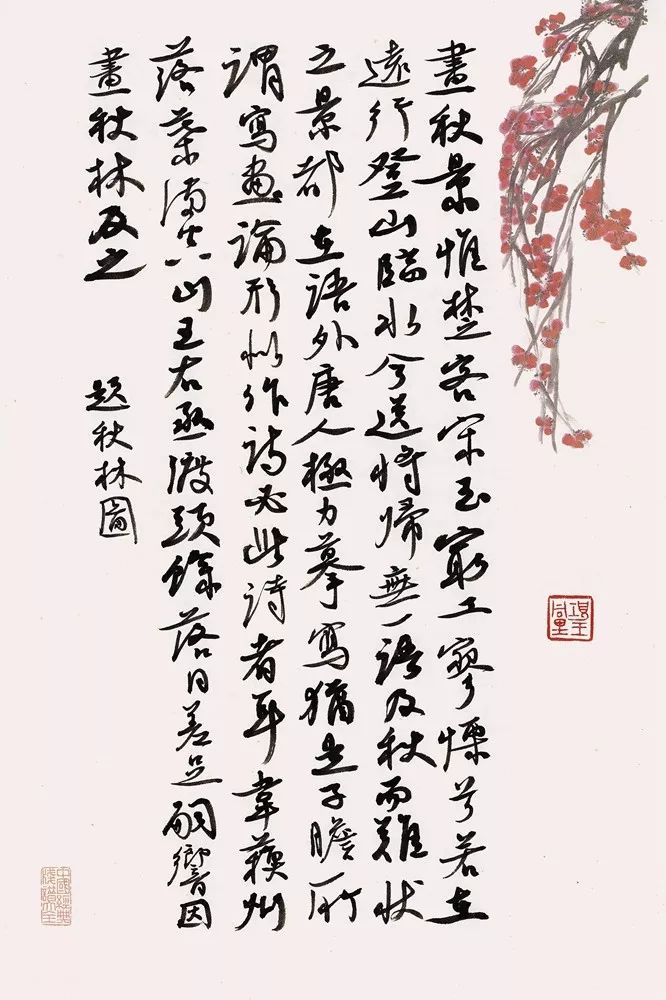 畫秋景惟楚客宋玉窮工寥慄兮若在
遠行登山臨水兮送將歸無一語及秋而難狀
之景都在語外唐人極力摹寫猶是子瞻所
謂寫畫論形似作詩必此詩者耳韋蘇州
落葉滿空山王右丞渡頭餘落日差足嗣響因
畫秋林及之
題秋林圖